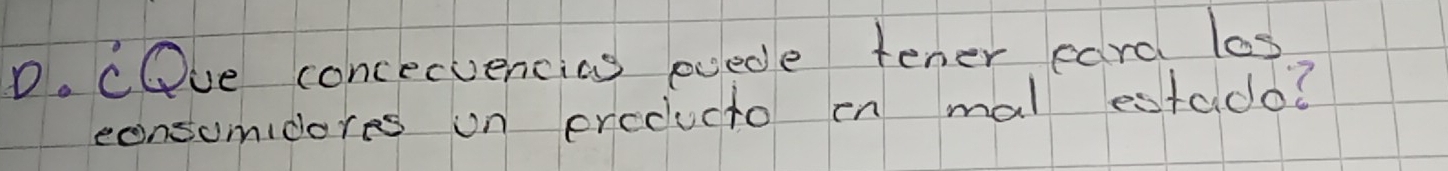 D. ¿Que concecuencias puede tener para los
consumidores un producto en mal estado?